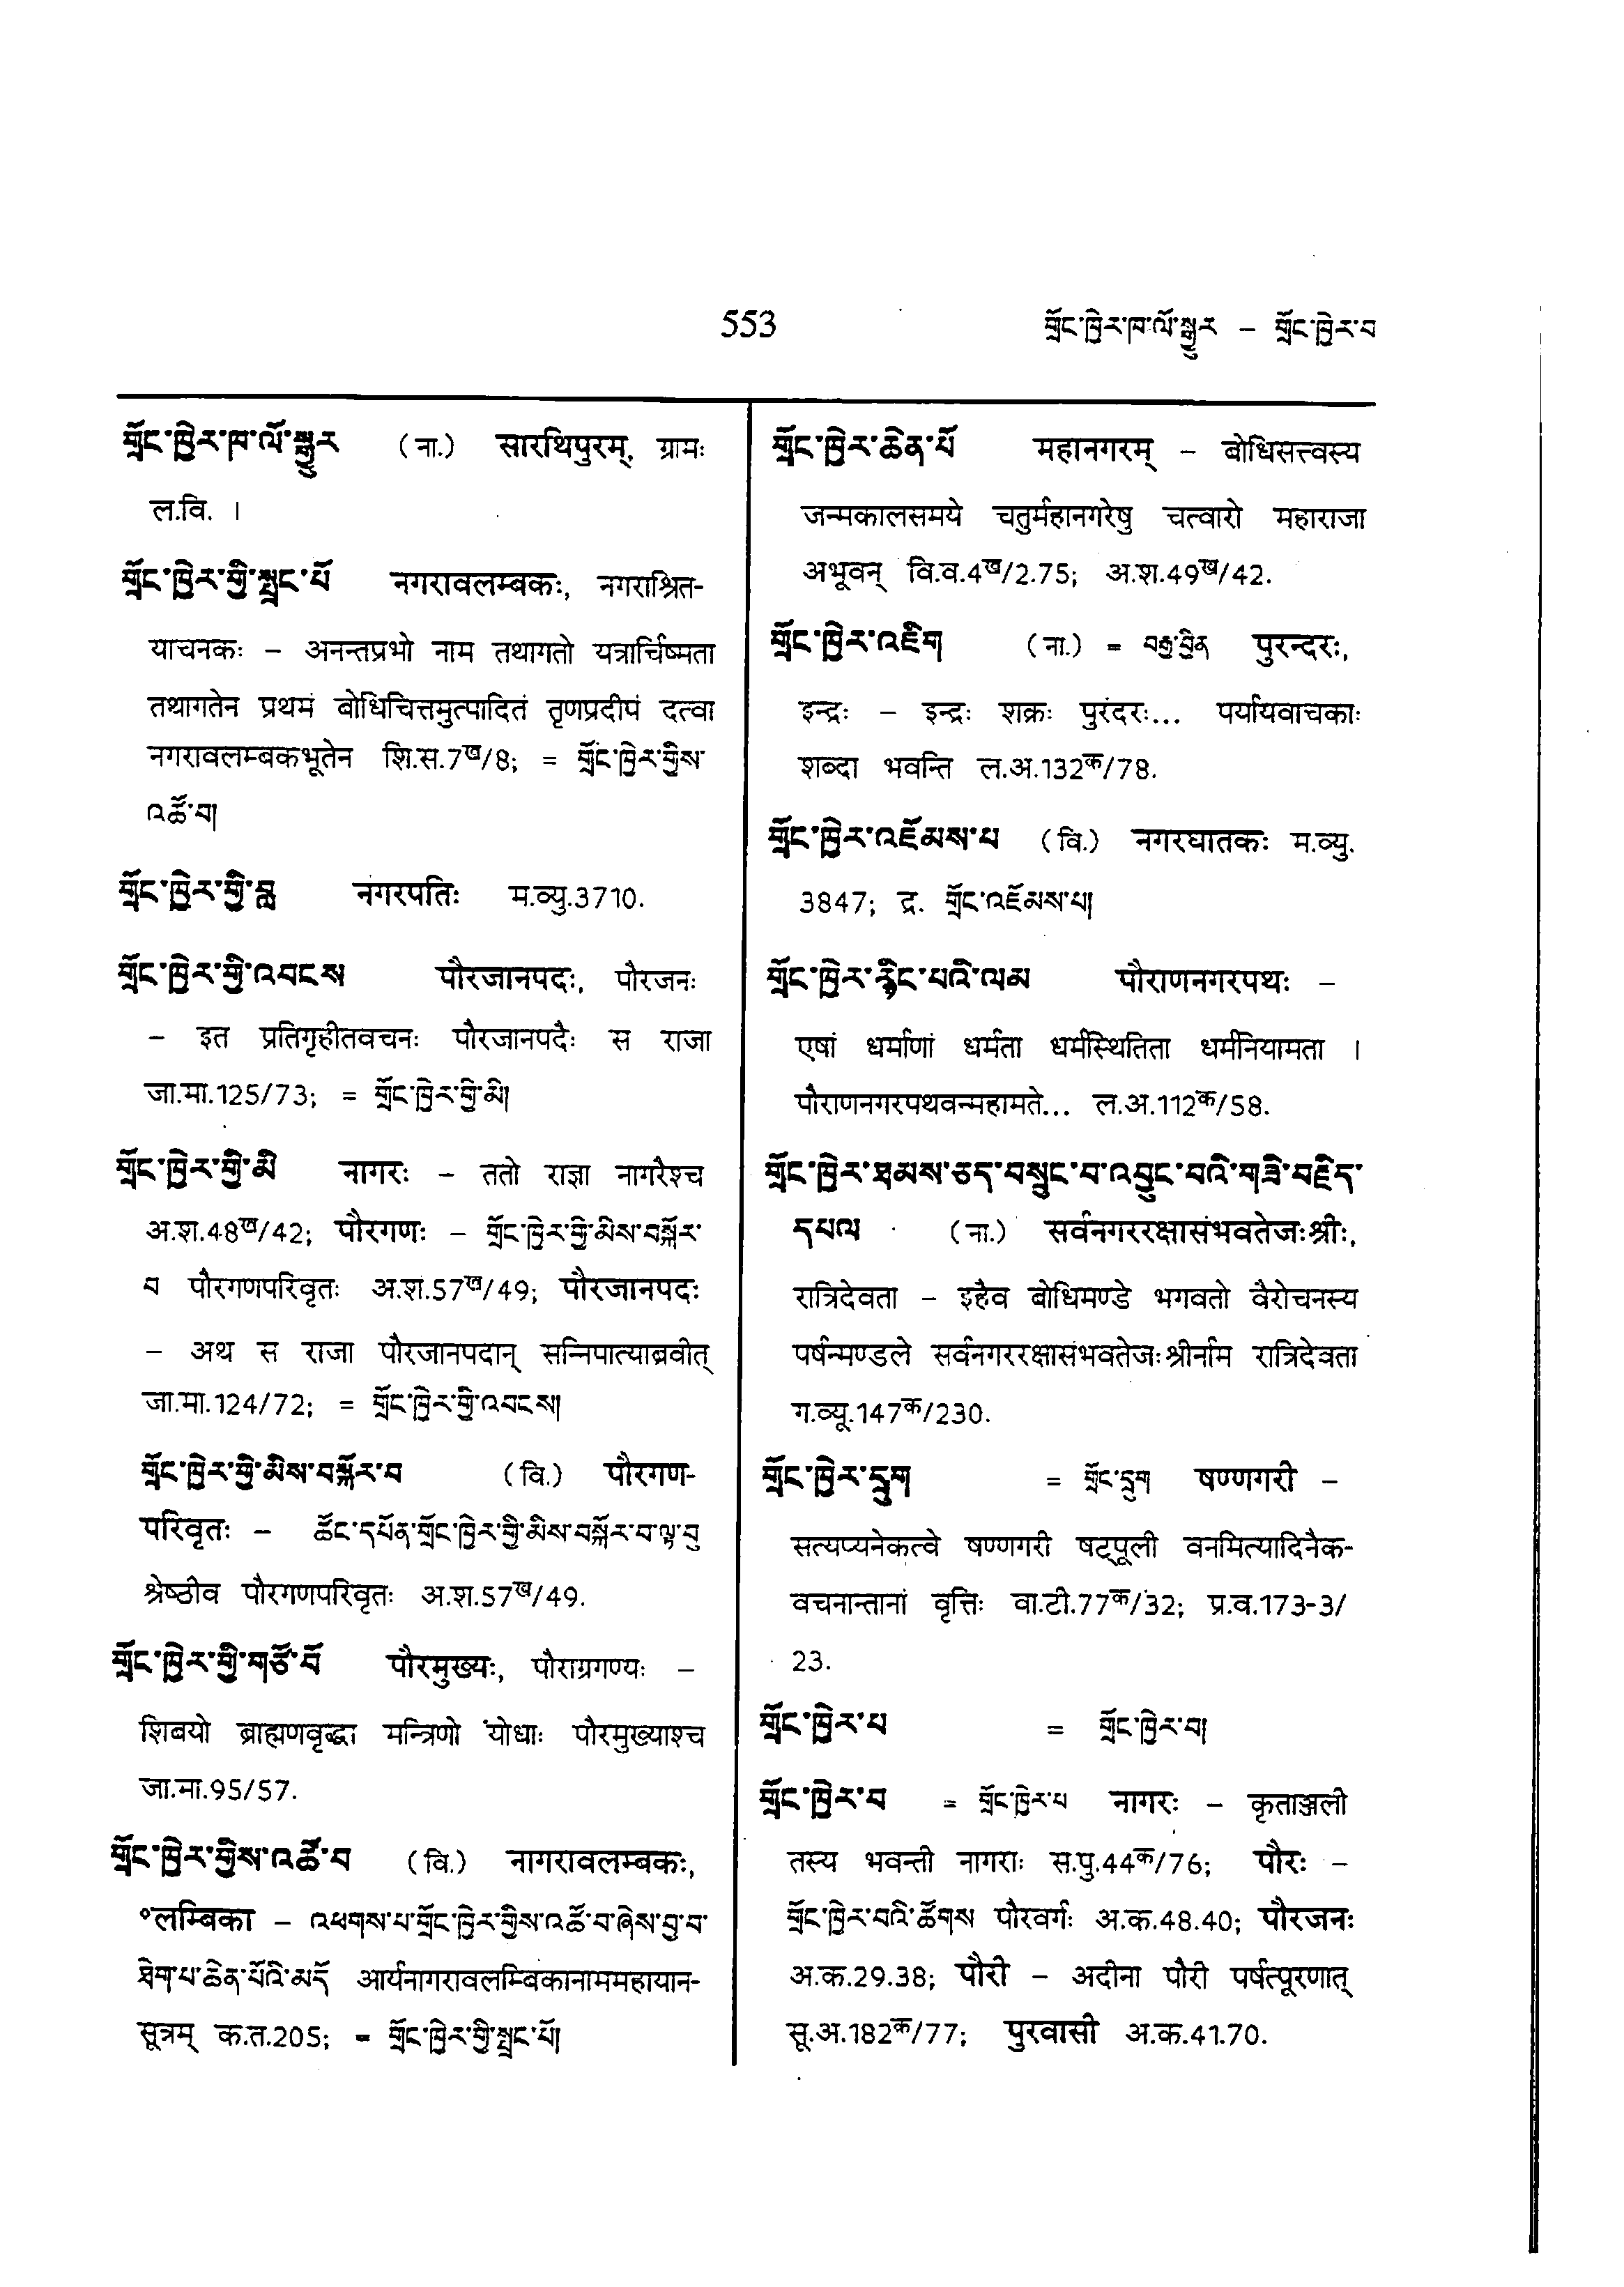 553
གྲོང་ཁྱེར་ཁ་ལོ་སྒྱུར – གྲོང་ཁྱེར་བ
གྲོང་ཁྱེར་ཁ་ལོ་སྒྱུར (ना.) सारथिपुरम्, ग्रामः
ल.वि. ।
གྲོང་ཁྱེར་གྱི་སྤྲང་པོ नगरावलम्बकः, नगराश्रित-
याचनकः – अनन्तप्रभो नाम तथागतो यत्रार्चिष्मता
तथागतेन प्रथमं बोधिचित्तमुत्पादितं तृणप्रदीपं दत्वा
नगरावलम्बकभूतेन शि.स.7ख/8; = གྲོང་ཁྱེར་གྱིས་
འཚོ་བ།
གྲོང་ཁྱེར་གྱི་བླ नगरपतिः म.व्यु.3710.
གྲོང་ཁྱེར་གྱི་འབངས पौरजानपदः, पौरजनः
– इत प्रतिगृहीतवचनः पौरजानपदैः स राजा
जा.मा.125/73; = གྲོང་ཁྱེར་གྱི་མི།
གྲོང་ཁྱེར་གྱི་མི नागरः – ततो राज्ञा नागरैश्च
अ.श.48ख/42; पौरगणः – གྲོང་ཁྱེར་གྱི་མིས་བསྐོར་
བ पौरगणपरिवृतः अ.श.57ख/49; पौरजानपदः
– अथ स राजा पौरजानपदान् सन्निपात्याब्रवीत्
जा.मा.124/72; = གྲོང་ཁྱེར་གྱི་འབངས།
གྲོང་ཁྱེར་གྱི་མིས་བསྐོར་བ (वि.) पौरगण-
परिवृतः – ཚོང་དཔོན་གྲོང་ཁྱེར་གྱི་མིས་བསྐོར་བ་ལྟ་བུ
श्रेष्ठीव पौरगणपरिवृतः अ.श.57ख/49.
གྲོང་ཁྱེར་གྱི་གཙོ་བོ पौरमुख्यः, पौराग्रगण्यः –
शिबयो ब्राह्मणवृद्धा मन्त्रिणो योधाः पौरमुख्याश्च
जा.मा.95/57.
གྲོང་ཁྱེར་གྱིས་འཚོ་བ (वि.) नागरावलम्बकः,
॰लम्बिका – འཕགས་པ་གྲོང་ཁྱེར་གྱིས་འཚོ་བ་ཞེས་བྱ་བ་
ཐེག་པ་ཆེན་པོའི་མདོ आर्यनागरावलम्बिकानाममहायान-
सूत्रम् क.त.205; = གྲོང་ཁྱེར་གྱི་སྤྲང་པོ།
གྲོང་ཁྱེར་ཆེན་པོ महानगरम् – बोधिसत्त्वस्य
जन्मकालसमये चतुर्महानगरेषु चत्वारो महाराजा
अभूवन् वि.व.4ख/2.75; अ.श.49ख/42.
གྲོང་ཁྱེར་འཇིག (ना.) = བརྒྱ་བྱིན पुरन्दरः,
इन्द्रः – इन्द्रः शक्रः पुरंदरः... पर्यायवाचकाः
शब्दा भवन्ति ल.अ.132क/78.
གྲོང་ཁྱེར་འཇོམས་པ (वि.) नगरघातकः म.व्यु.
3847; द्र. གྲོང་འཇོམས་པ།
གྲོང་ཁྱེར་རྙིང་པའི་ལམ पौराणनगरपथः –
एषां धर्माणां धर्मता धर्मस्थितिता धर्मनियामता ।
पौराणनगरपथवन्महामते... ल.अ.112क/58.
གྲོང་ཁྱེར་ཐམས་ཅད་བསྲུང་བ་འབྱུང་བའི་གཟི་བརྗིད་
དཔལ (ना.) सर्वनगररक्षासंभवतेजःश्रीः,
रात्रिदेवता – इहैव बोधिमण्डे भगवतो वैरोचनस्य
पर्षन्मण्डले सर्वनगररक्षासंभवतेजःश्रीर्नाम रात्रिदेवता
ग.व्यू.147क/230.
གྲོང་ཁྱེར་དྲུག = གྲོང་དྲུག षण्णगरी –
सत्यप्यनेकत्वे षण्णगरी षट्पूली वनमित्यादिनैक-
वचनान्तानां वृत्तिः वा.टी.77क/32; प्र.व.173-3/
23.
གྲོང་ཁྱེར་པ = གྲོང་ཁྱེར་བ།
གྲོང་ཁྱེར་བ = གྲོང་ཁྱེར་པ नागरः – कृताञ्जली
तस्य भवन्ती नागराः स.पु.44क/76; पौरः –
གྲོང་ཁྱེར་བའི་ཚོགས पौरवर्गः अ.क.48.40; पौरजनः
अ.क.29.38; पौरी – अदीना पौरी पर्षत्पूरणात्
सू.अ.182क/77; पुरवासी अ.क.41.70.